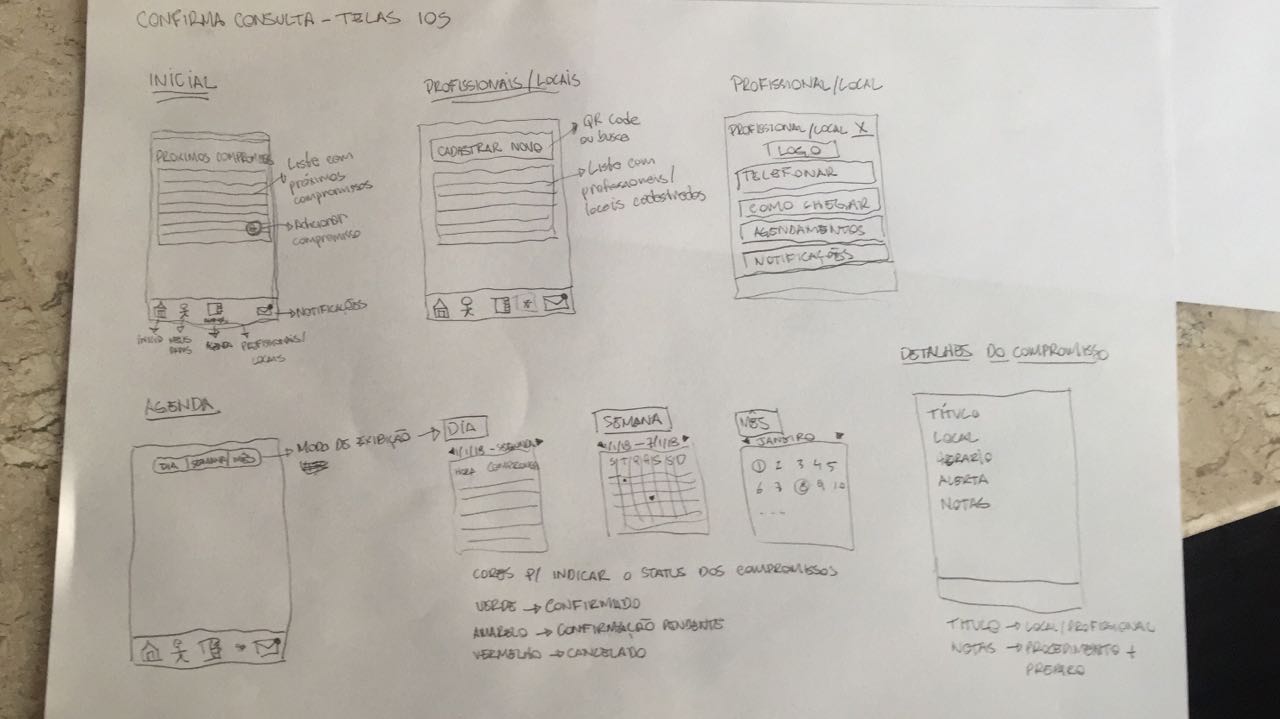 CONFIRMA CONSULTA - TELAS IOS
INICIAL
PRÓXIMOS COMPROMISS
Lista com
próximos
compromissos
Adicionar
compromisso
NOTIFICAÇÕES
INÍCIO
MEUS
DADOS
AGENDA
PROFISSIONAIS/
LOCAIS
PROFISSIONAIS/LOCAIS
CADASTRAR NOVO
QR Code
ou busca
Lista com
profissionais/
locais cadastrados
PROFISSIONAL/LOCAL
PROFISSIONAL/LOCAL X
LOGO
TELEFONAR
COMO CHEGAR
AGENDAMENTOS
NOTIFICAÇÕES
AGENDA
DIA SEMANA MÊS
MODO DE EXIBIÇÃO
DIA
1/1/18 - SEGUNDA
HORA COMPROMISSO
SEMANA
1/1/18 - 7/1/18
S T Q Q S S D
MÊS
JANEIRO
1 2 3 4 5
6 7 8 9 10
...
CORES P/ INDICAR O STATUS DOS COMPROMISSOS
VERDE → CONFIRMADO
AMARELO → CONFIRMAÇÃO PENDENTE
VERMELHO → CANCELADO
DETALHES DO COMPROMISSO
TÍTULO
LOCAL
HORÁRIO
ALERTA
NOTAS
TÍTULO → LOCAL/PROFISSIONAL
NOTAS → PROCEDIMENTO +
PREPARO